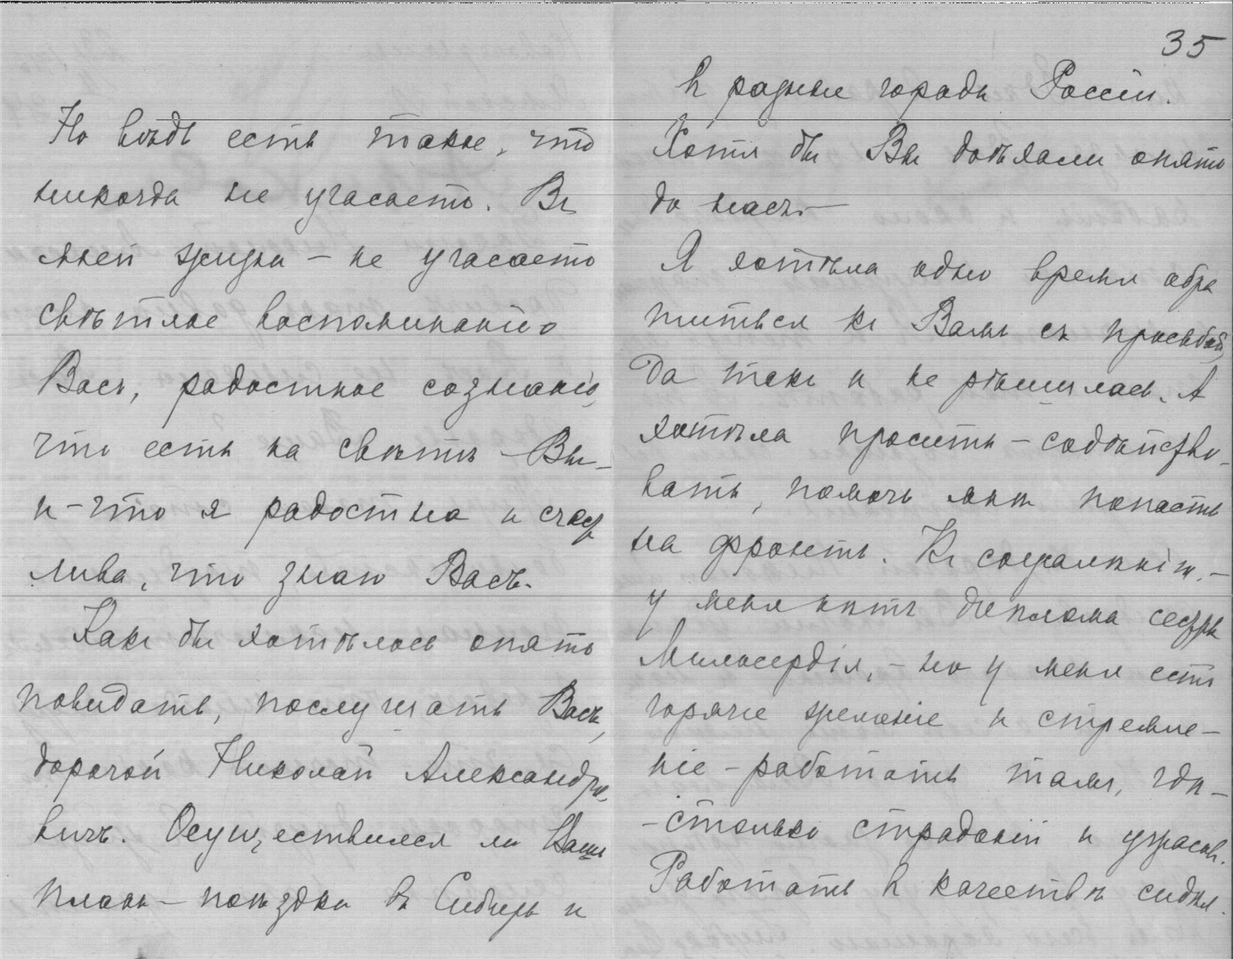 Но вѣдь есть такое, что
никогда не угасаетъ. Въ
моей жизни – не угасаетъ
свѣтлое воспоминаніе о
Васъ, радостное сознаніе,
что есть на свѣтѣ – Вы –
и – что я радостна и счаст
лива, что знаю Васъ.
Какъ бы хотѣлось опять
повидать, послушать Васъ,
дорогой Николай Александро-
вичъ. Осуществился ли Вашъ
планъ – поѣздка въ Сибирь и
35
въ разные города Россіи.
Хотя бы Вы доѣхали опять
до насъ –
Я хотѣла одно время обра
титься къ Вамъ съ просьбой,
да такъ и не рѣшилась. Я
хотѣла просить – содѣйство-
вать, помочь мнѣ попасть
на фронтъ. Къ сожалѣнію, –
у меня нѣтъ диплома сестры
Милосердія, – но у меня есть
горячее желаніе и стремле-
ніе – работать тамъ, гдѣ –
– столько страданій и ужасовъ.
Работать въ качествѣ сидѣл.